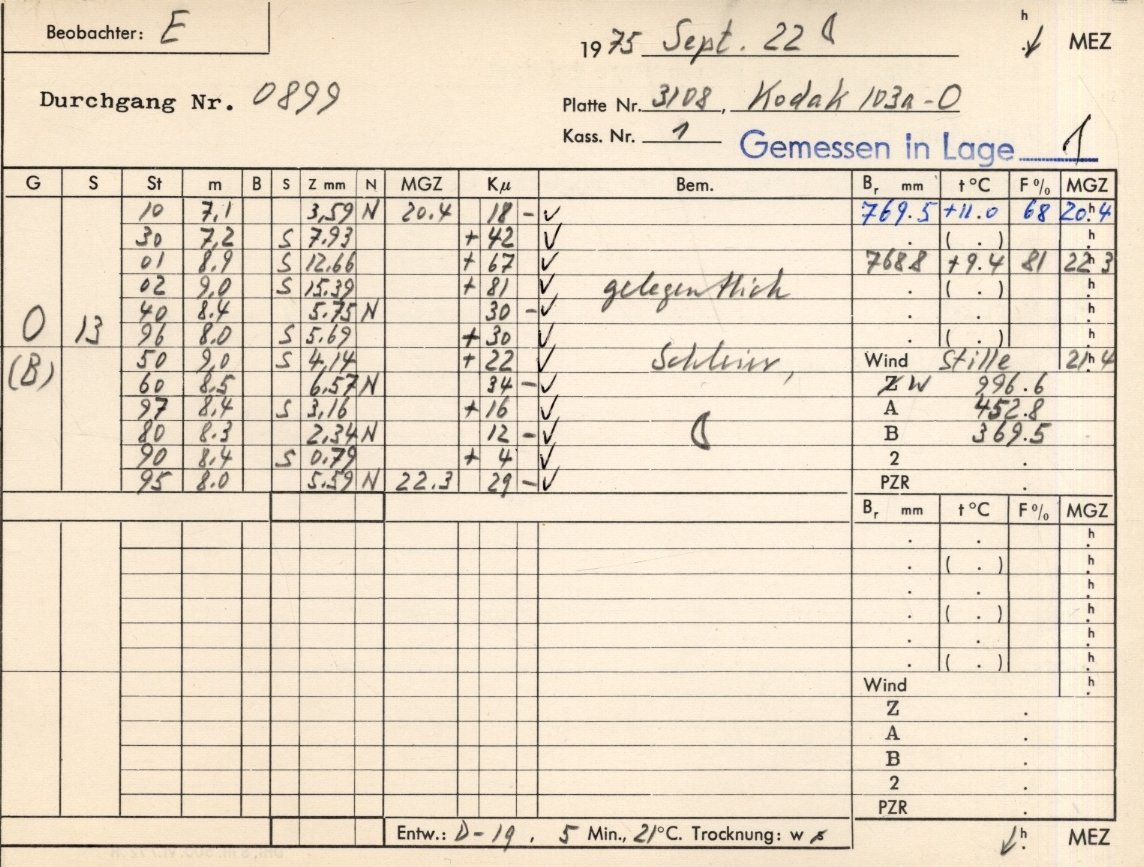 Beobachter: E
1975 Sept. 22 h MEZ
Durchgang Nr. 0899
Platte Nr. 3108, Kodak 103a-O
Kass. Nr. 1
Gemessen in Lage 1
G S St m B S Z mm N MGZ Kμ Bem. Br mm t °C F% MGZ
10 7,1 3,59 N 20.4 18 - ✓ 769.5 +11.0 68 20h.4
30 7,2 S 7.93 + 42 ✓ . ( . ) h.
01 8.9 S 12.66 + 67 ✓ 768 8 +9.4 81 22h 3
02 9,0 S 15.39 + 81 ✓ gelegentlich . ( . ) h.
40 8.4 5.75 N 30 - ✓ . . h.
O 13 96 8.0 S 5.69 + 30 ✓ . ( . ) h.
(B) 50 9,0 S 4,14 + 22 ✓ Schleier, Wind Stille 21h.4
60 8.5 6,57 N 34 - ✓ W 996.6
97 8.4 S 3,16 + 16 ✓ A 452.8
80 8.3 2,34 N 12 - ✓ B 369.5
90 8.4 S 0.79 + 4 ✓ 2 .
95 8.0 5.59 N 22.3 29 - ✓ PZR .
Br mm t °C F% MGZ
. . h.
. ( . ) h.
. . h.
. ( . ) h.
. . h.
. ( . ) h.
Wind h.
Z .
A .
B .
2 .
PZR .
Entw.: D-19. 5 Min., 21°C. Trocknung: w s
h. MEZ